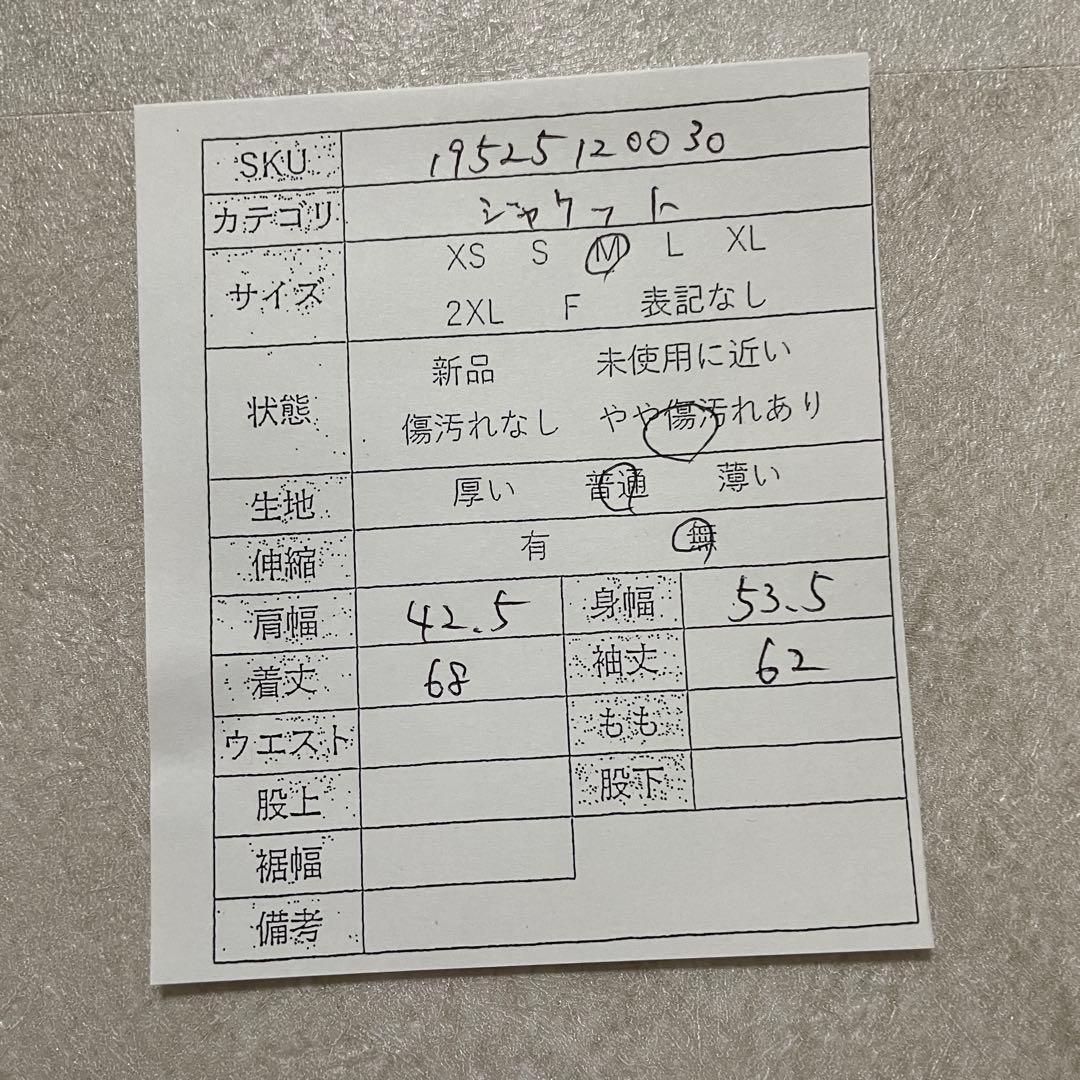 SKU 19525120030
カテゴリ ジャケット
サイズ XS S M L XL
2XL F 表記なし
状態 新品 未使用に近い
傷汚れなし やや傷汚れあり
生地 厚い 普通 薄い
伸縮 有 無
肩幅 42.5 身幅 53.5
着丈 68 袖丈 62
ウエスト もも
股上 股下
裾幅
備考